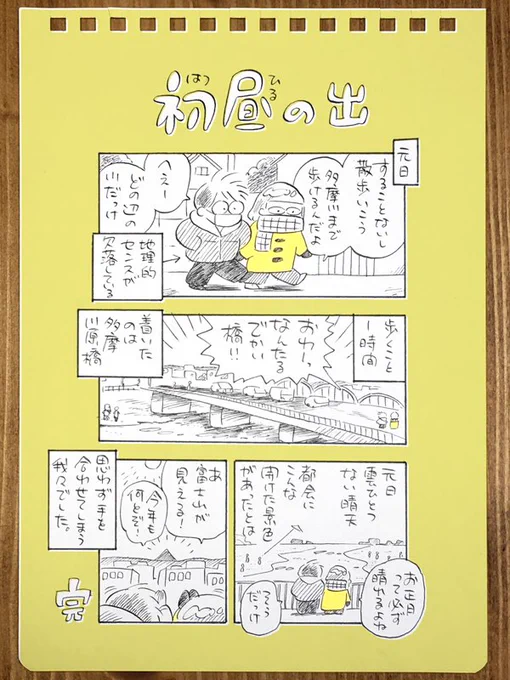 初昼の出
はつ
ひる
元日
することないし
散歩いこう
多摩川まで
歩けるんだよ
へえー
どの辺の
川だっけ
地理的
センスが
欠落している
歩くこと
1時間
おわーっ
なんたる
でかい
橋!!
着いた
のは
多摩
川原橋
元日
雲ひとつ
ない晴天
都会に
こんな
開けた景色
があったとは
お正月
って必ず
晴れるよね
そう
だっけ
あ
富士山が
見える!
今年も
何とぞ!
思わず手を
合わせてしまう
我々でした。
完